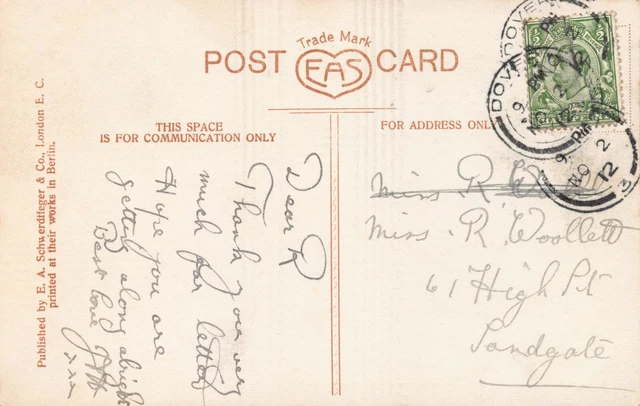 Trade Mark
POST EAS CARD
THIS SPACE
IS FOR COMMUNICATION ONLY
FOR ADDRESS ONLY
Published by E. A. Schwerdtfeger & Co., London E. C.
printed at their works in Berlin.
Dear R
Thank you very
much for letter
Hope you are
getting along alright
Best Love
xxx
Miss R.
Miss. R. Woollett
61 High St
Sandgate
DOVER
DOVER
9. PM
NO 2
12
3